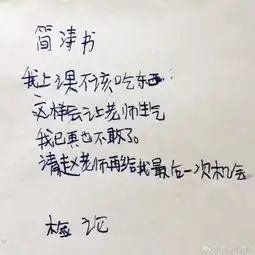 简清书
我上课不该吃东西
这样会让老师生气
我已真也不敢了。
请赵老师再给我最后一次机会